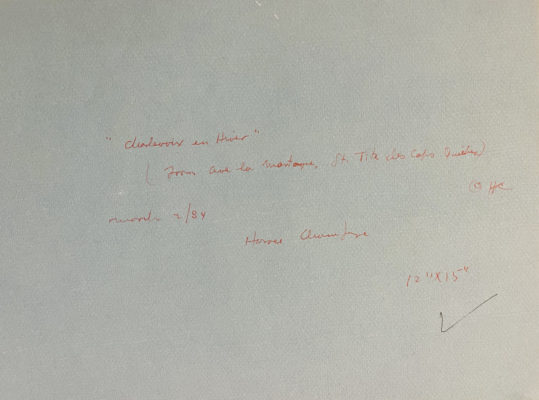 "Charlevoix en Hiver"
( from ave la montagne, St. Tite des Caps Québec)
© HC
march 2/84
Horace Champagne
12"X15"